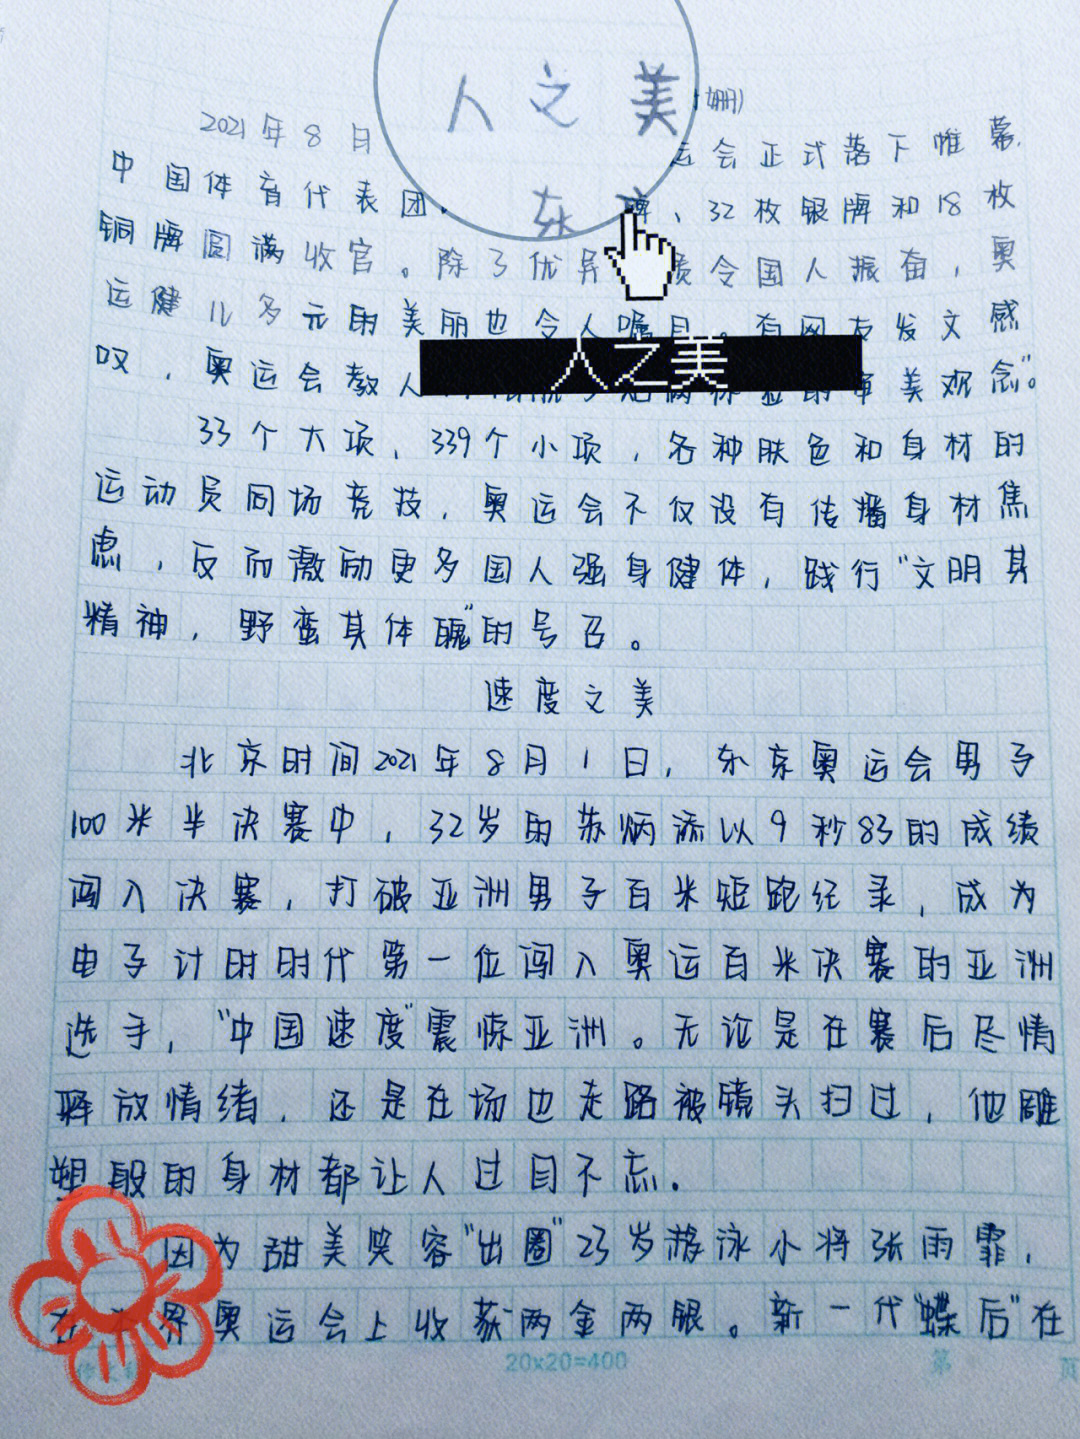 人之美
姗)
2021年8月 运会正式落下帷幕,
中国体育代表团, 东 牌、32枚银牌和18枚
铜牌圆满收官。除了优异 令国人振奋，奥
运健儿多元的美丽也令人瞩目。有网友发文感
叹，奥运会教人 审美观念”。
人之美
33个大项，339个小项，各种肤色和身材的
运动员同场竞技，奥运会不仅没有传播身材焦
虑，反而激励更多国人强身健体，践行“文明其
精神，野蛮其体魄”的号召。
速度之美
北京时间2021年8月1日，东京奥运会男子
100米半决赛中，32岁的苏炳添以9秒83的成绩
闯入决赛，打破亚洲男子百米短跑纪录，成为
电子计时时代第一位闯入奥运百米决赛的亚洲
选手，“中国速度”震惊亚洲。无论是在赛后尽情
释放情绪，还是在场边走路被镜头扫过，他雕
塑般的身材都让人过目不忘。
因为甜美笑容“出圈”23岁游泳小将张雨霏，
在本界奥运会上收获两金两银。新一代“蝶后”在
20x20=400
第 页